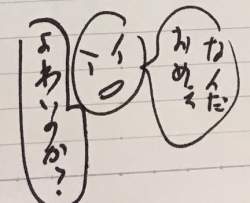 なんだ
おめえ
よわいのか?